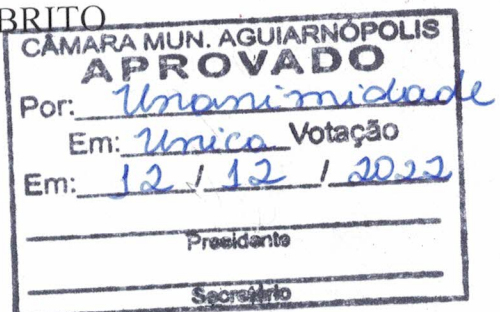 BRITO
CÂMARA MUN. AGUIARNÓPOLIS
APROVADO
Por: Unanimidade
Em: Unica Votação
Em: 12 / 12 / 2022
Presidente
Secretário